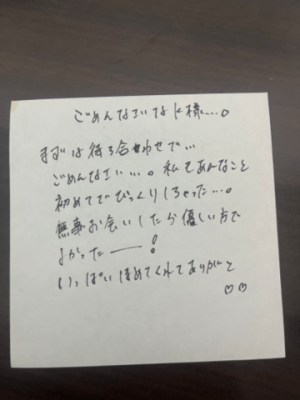 ごめんなさいな K様....。
まずは待ち合わせで...
ごめんなさい...。私もあんなこと
初めてでびっくりしちゃった...。
無事お会いしたら優しい方で
よかったー!
いっぱいほめてくれてありがと
♡♡